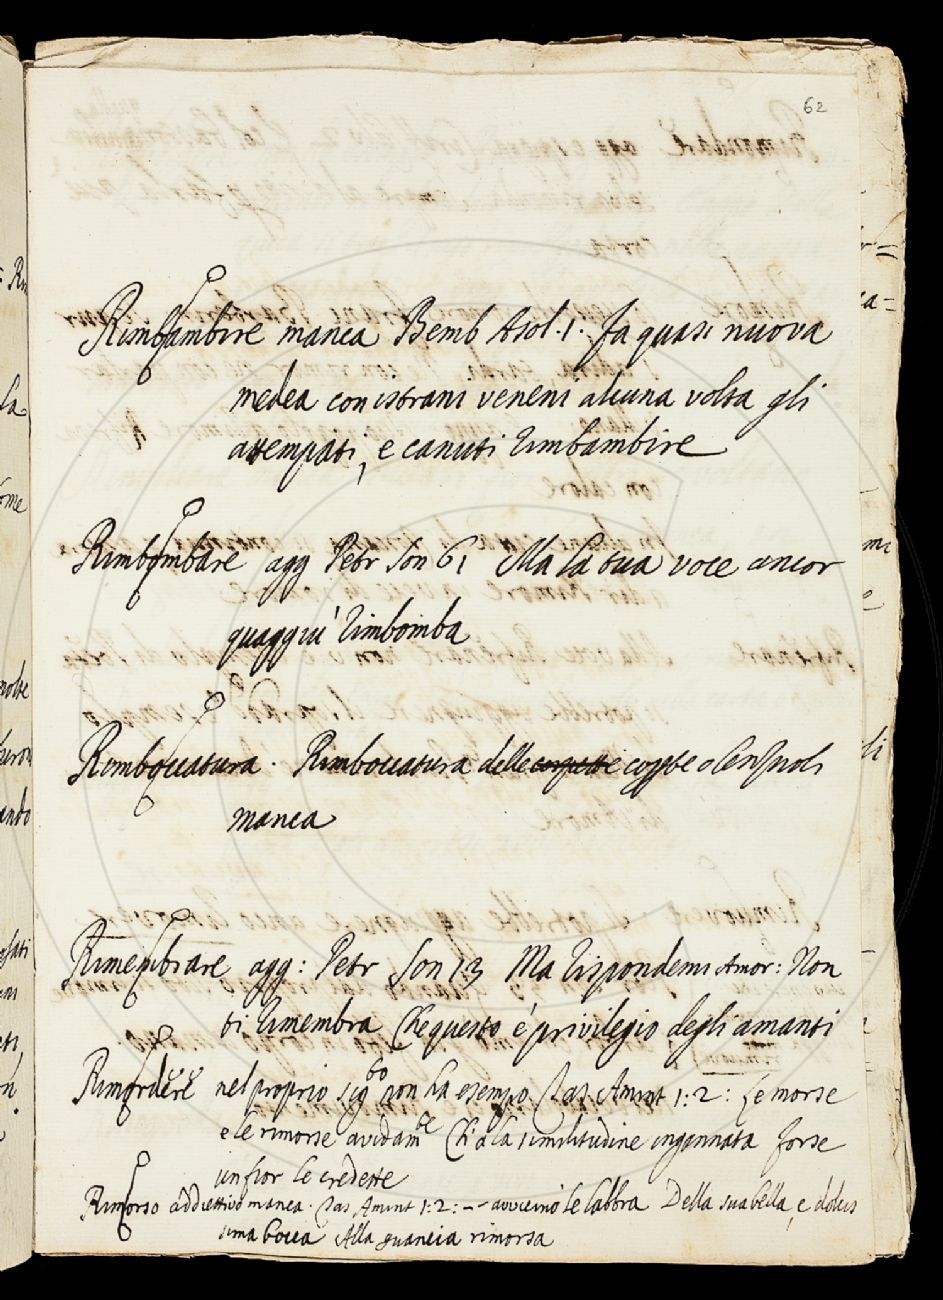 62
Rimbambire manca Bemb Asol. 1. Fa quasi nuova
medea con istrani veneni alcuna volta gli
attempati, e canuti rimbambire
Rimbombare agg Petr Son 61 Ma la tua voce ancor
quaggiù rimbomba
Rimboccatura. Rimboccatura delle coppette coppte o lenzuoli
manca
Rimembrare agg: Petr Son 13 Ma rispondemi Amor: Non
ti rimembra Che questo è privilegio degli amanti
Rimordere nel proprio sigto non ha esempo Tas Amint 1:2: Le morse
e le rimorse avidamte Ch'a la similitudine ingannata forse
un fior le credette
Rimorso addiettivo manca. Tas Amint 1:2: -- avvicinò le labbra Della sua bella, e dolcis
sima bocca Alla guancia rimorsa